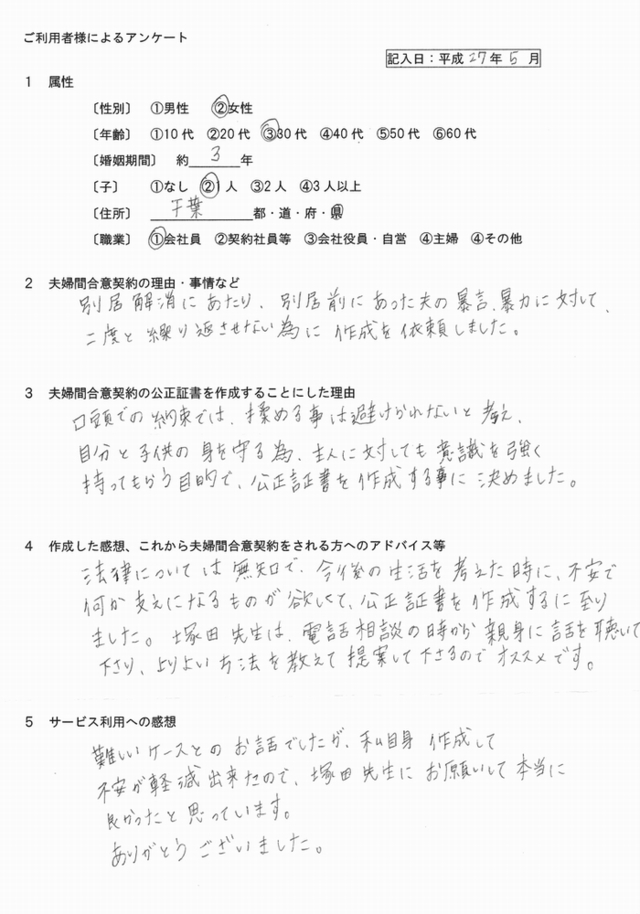 ご利用者様によるアンケート
記入日：平成27年5月
1 属性
〔性別〕 ①男性 ②女性
〔年齢〕 ①10代 ②20代 ③30代 ④40代 ⑤50代 ⑥60代
〔婚姻期間〕 約 3 年
〔子〕 ①なし ②1人 ③2人 ④3人以上
〔住所〕 千葉 都・道・府・県
〔職業〕 ①会社員 ②契約社員等 ③会社役員・自営 ④主婦 ④その他
2 夫婦間合意契約の理由・事情など
別居解消にあたり、別居前にあった夫の暴言、暴力に対して、
二度と繰り返させない為に作成を依頼しました。
3 夫婦間合意契約の公正証書を作成することにした理由
口頭での約束では、揉める事は避けられないと考え、
自分と子供の身を守る為、主人に対しても意識を強く
持ってもらう目的で、公正証書を作成する事に決めました。
4 作成した感想、これから夫婦間合意契約をされる方へのアドバイス等
法律については無知で、今後の生活を考えた時に、不安で
何か支えになるものが欲しくて、公正証書を作成するに至り
ました。塚田先生は、電話相談の時から親身に話を聴いて
下さり、よりよい方法を教えて提案して下さるのでオススメです。
5 サービス利用への感想
難しいケースとのお話でしたが、私自身作成して
不安が軽減出来たので、塚田先生にお願いして本当に
良かったと思っています。
ありがとうございました。